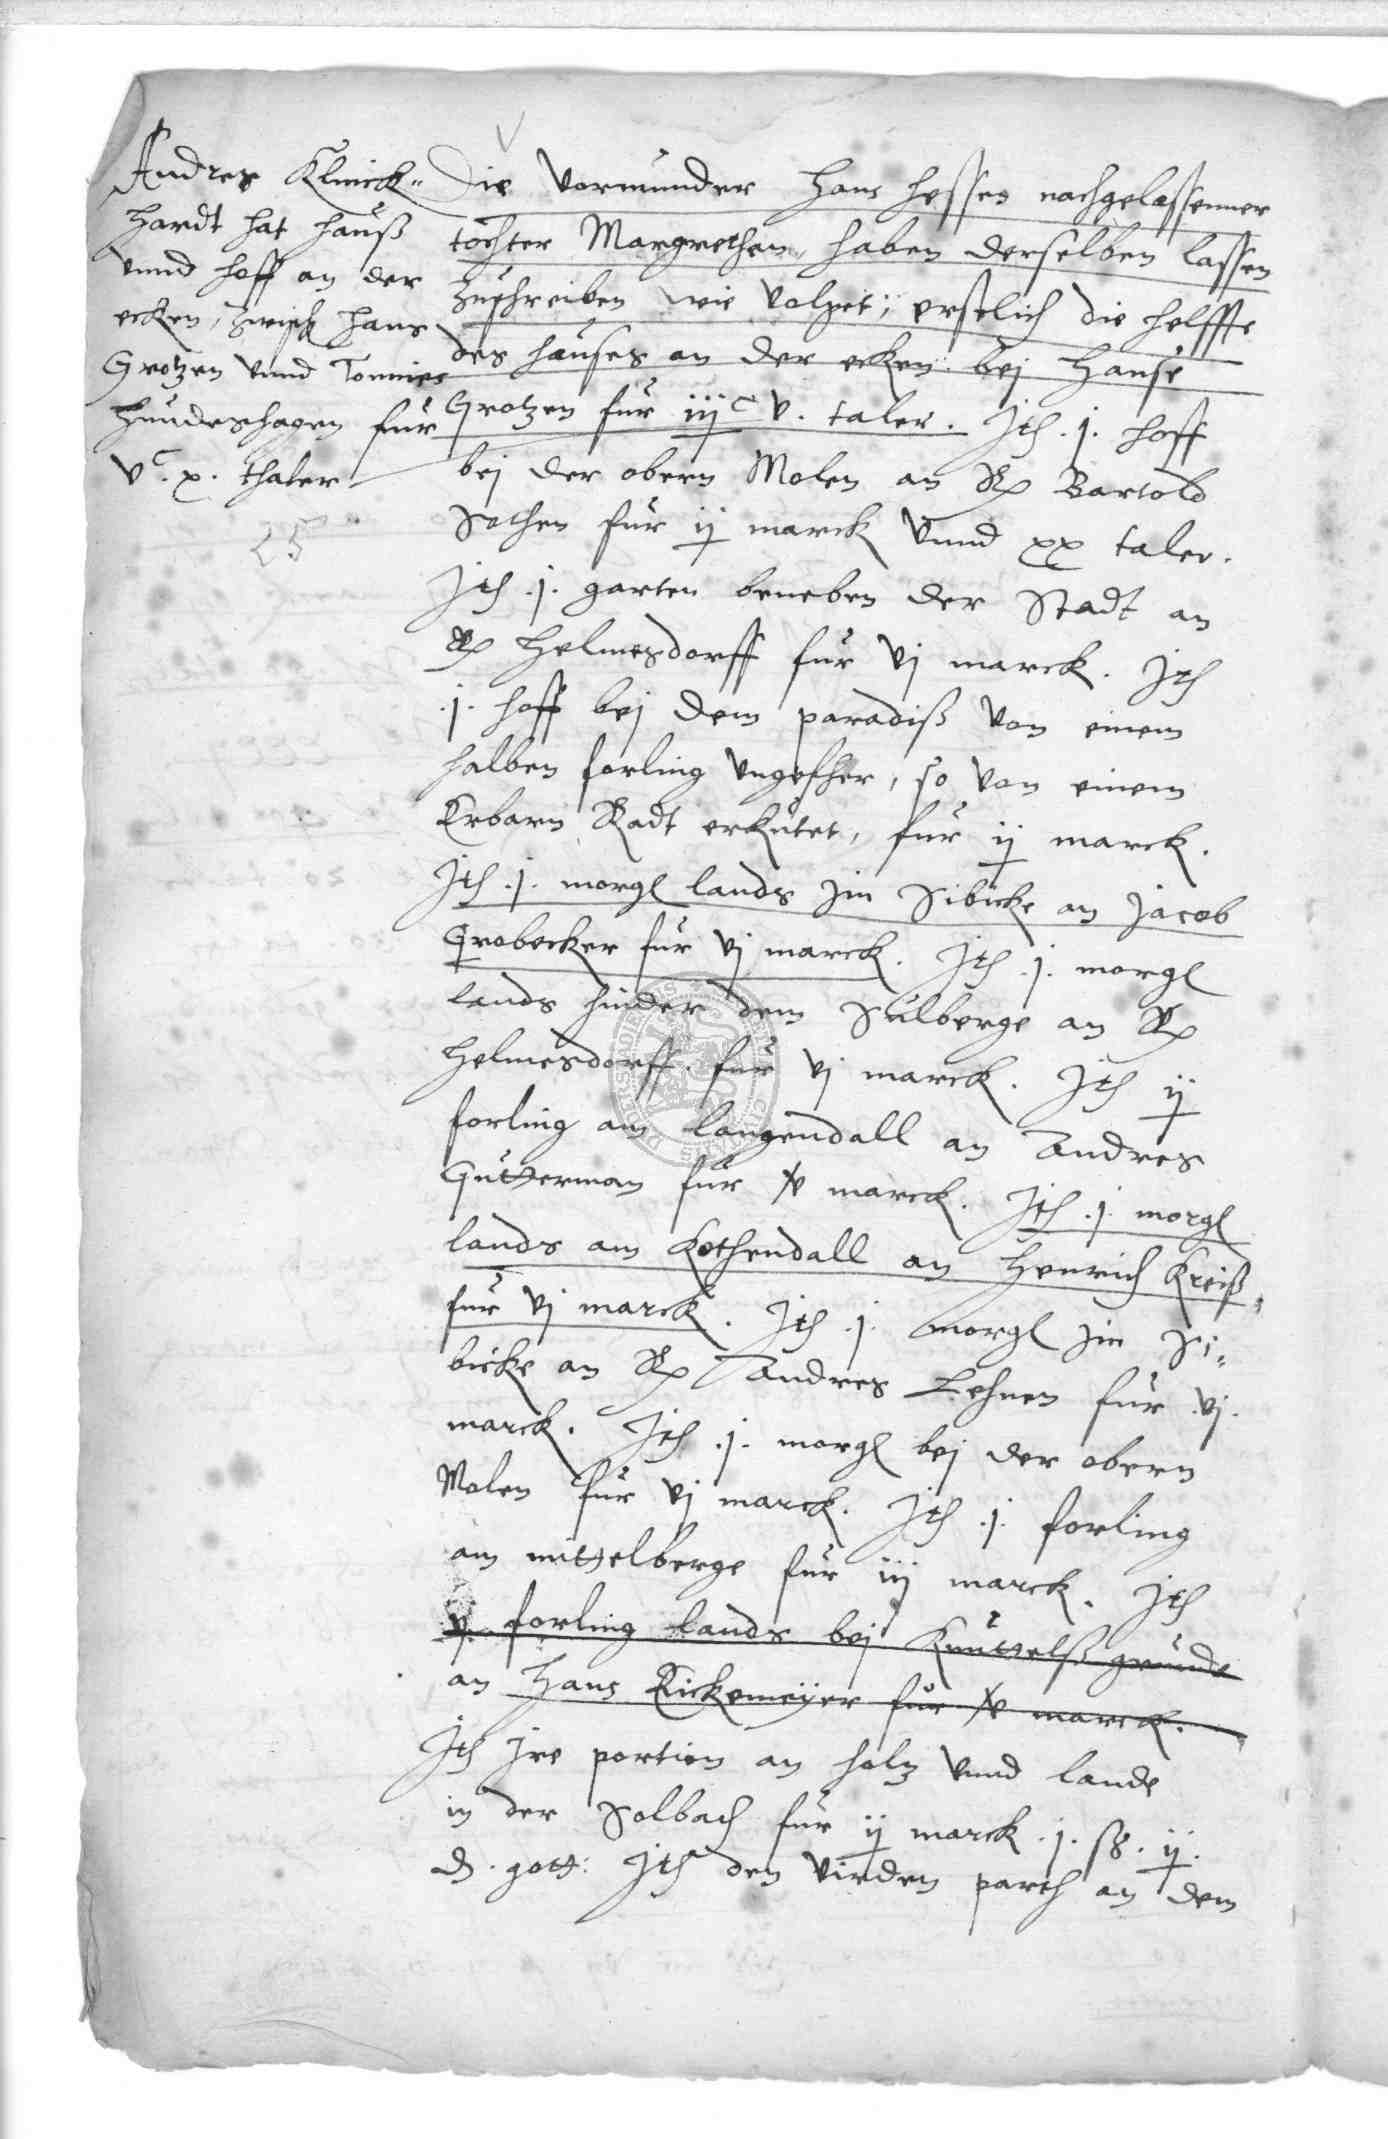 Andres Klinck-
hardt hat hauß
vnnd hoff an der
ecken, zwisch hans
Grotzen vnnd Tonnies
Hundeshagen fur
vc. x. thaler
25
Die Vormunder Hans Hessen nachgelassenner
tochter Margrethen, haben derselben lassen
Zuschreiben wie volget, erstlich die helffte
des hauses an der ecken bej Hanse
Grotzen fur iijc v. taler. Jth .j. hoff
bej der obern Molen an Bartold
Sothen fur ij marck vnnd xx taler.
Jth .j. garten beneben der Stadt an
Helmesdorff fur vj marck. Jth
.j. hoff bej dem paradiß von einem
halben forling vngefher, so von einem
Erbarn Radt erkutet, fur ij marck.
Jth .j. morgl lands jm Sibicke an Jacob
Grobecker fur vj marck. Jth .j. morgl
lands hinder dem Sulberge an
Helmesdorff fur vj marck. Jth ij
forling am langendall an Andres
Gutterman fur marck. Jth .j. morgl
lands am Kothendall an Henrich Kreiß
fur vj marck. Jth .j. morgl jm Si-
bicke an Andres Lehnen fur vj.
marck. Jth .j. morgl bej der obern
Molen fur vj marck. Jth .j. forling
am mittelberge fur iij marck. Jth
forling lands bej Knuttelß grunde
an Hans Eickemeijer fur marck.
Jth jre portion an holtz vnnd lande
in der Solbach fur ij marck .j. ß. ij.
d. gott: Jth den virden parth an dem